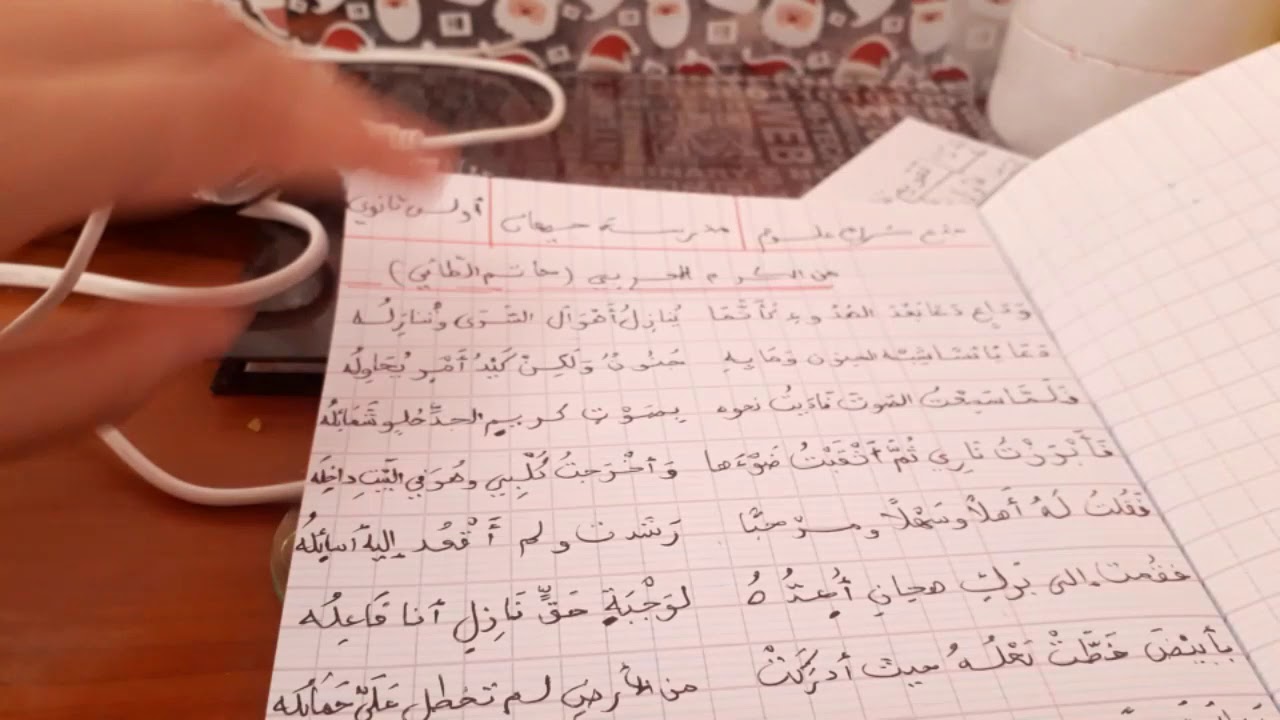 جذع مشترك علوم | مدرسة جيهان | أولى ثانوي
من الكرم العربي (حاتم الطائي)
وَدَاعٍ دَعَا بَعْدَ الهُدُوءِ كَأَنَّمَا يُنَازِلُ أَهْوَالَ السُّرَى وتُنَازِلُه
دَعَا بَائسًا شِبْهَ الجنون وَمَا بِهِ جُنُونٌ وَلَكِنْ كَيْدُ أَمْرٍ يُحَاوِلُه
فَلَمَّا سَمِعْتُ الصَّوتَ نَادَيْتُ نحوه بِصَوْتٍ كريمِ الجدِّ حُلْوٍ شَمَائِلُه
فَأَبْرَزْتُ نَارِي ثُمَّ أَثْقَبْتُ ضَوْءَها وَأَخْرَجتُ كَلْبِي وهُوَ في البَيْتِ دَاخِلُه
فَقُلتُ لَهُ أَهلاً وسَهْلاً ومرْحبًا رَشَدت ولم أَقْعُد إليه أسائِلُه
فقُمت إلى بَرْكٍ هجانٍ أُعِدُّهُ لوَجْبَةِ حَقٍّ نَازِلٍ أنا فَاعِلُه
بأبيْضَ خَطَّتْ نَعْلُهُ حيث أَدْرَكَتْ من الأرضِ لم تخطل عَلَيَّ حَمَائِلُه